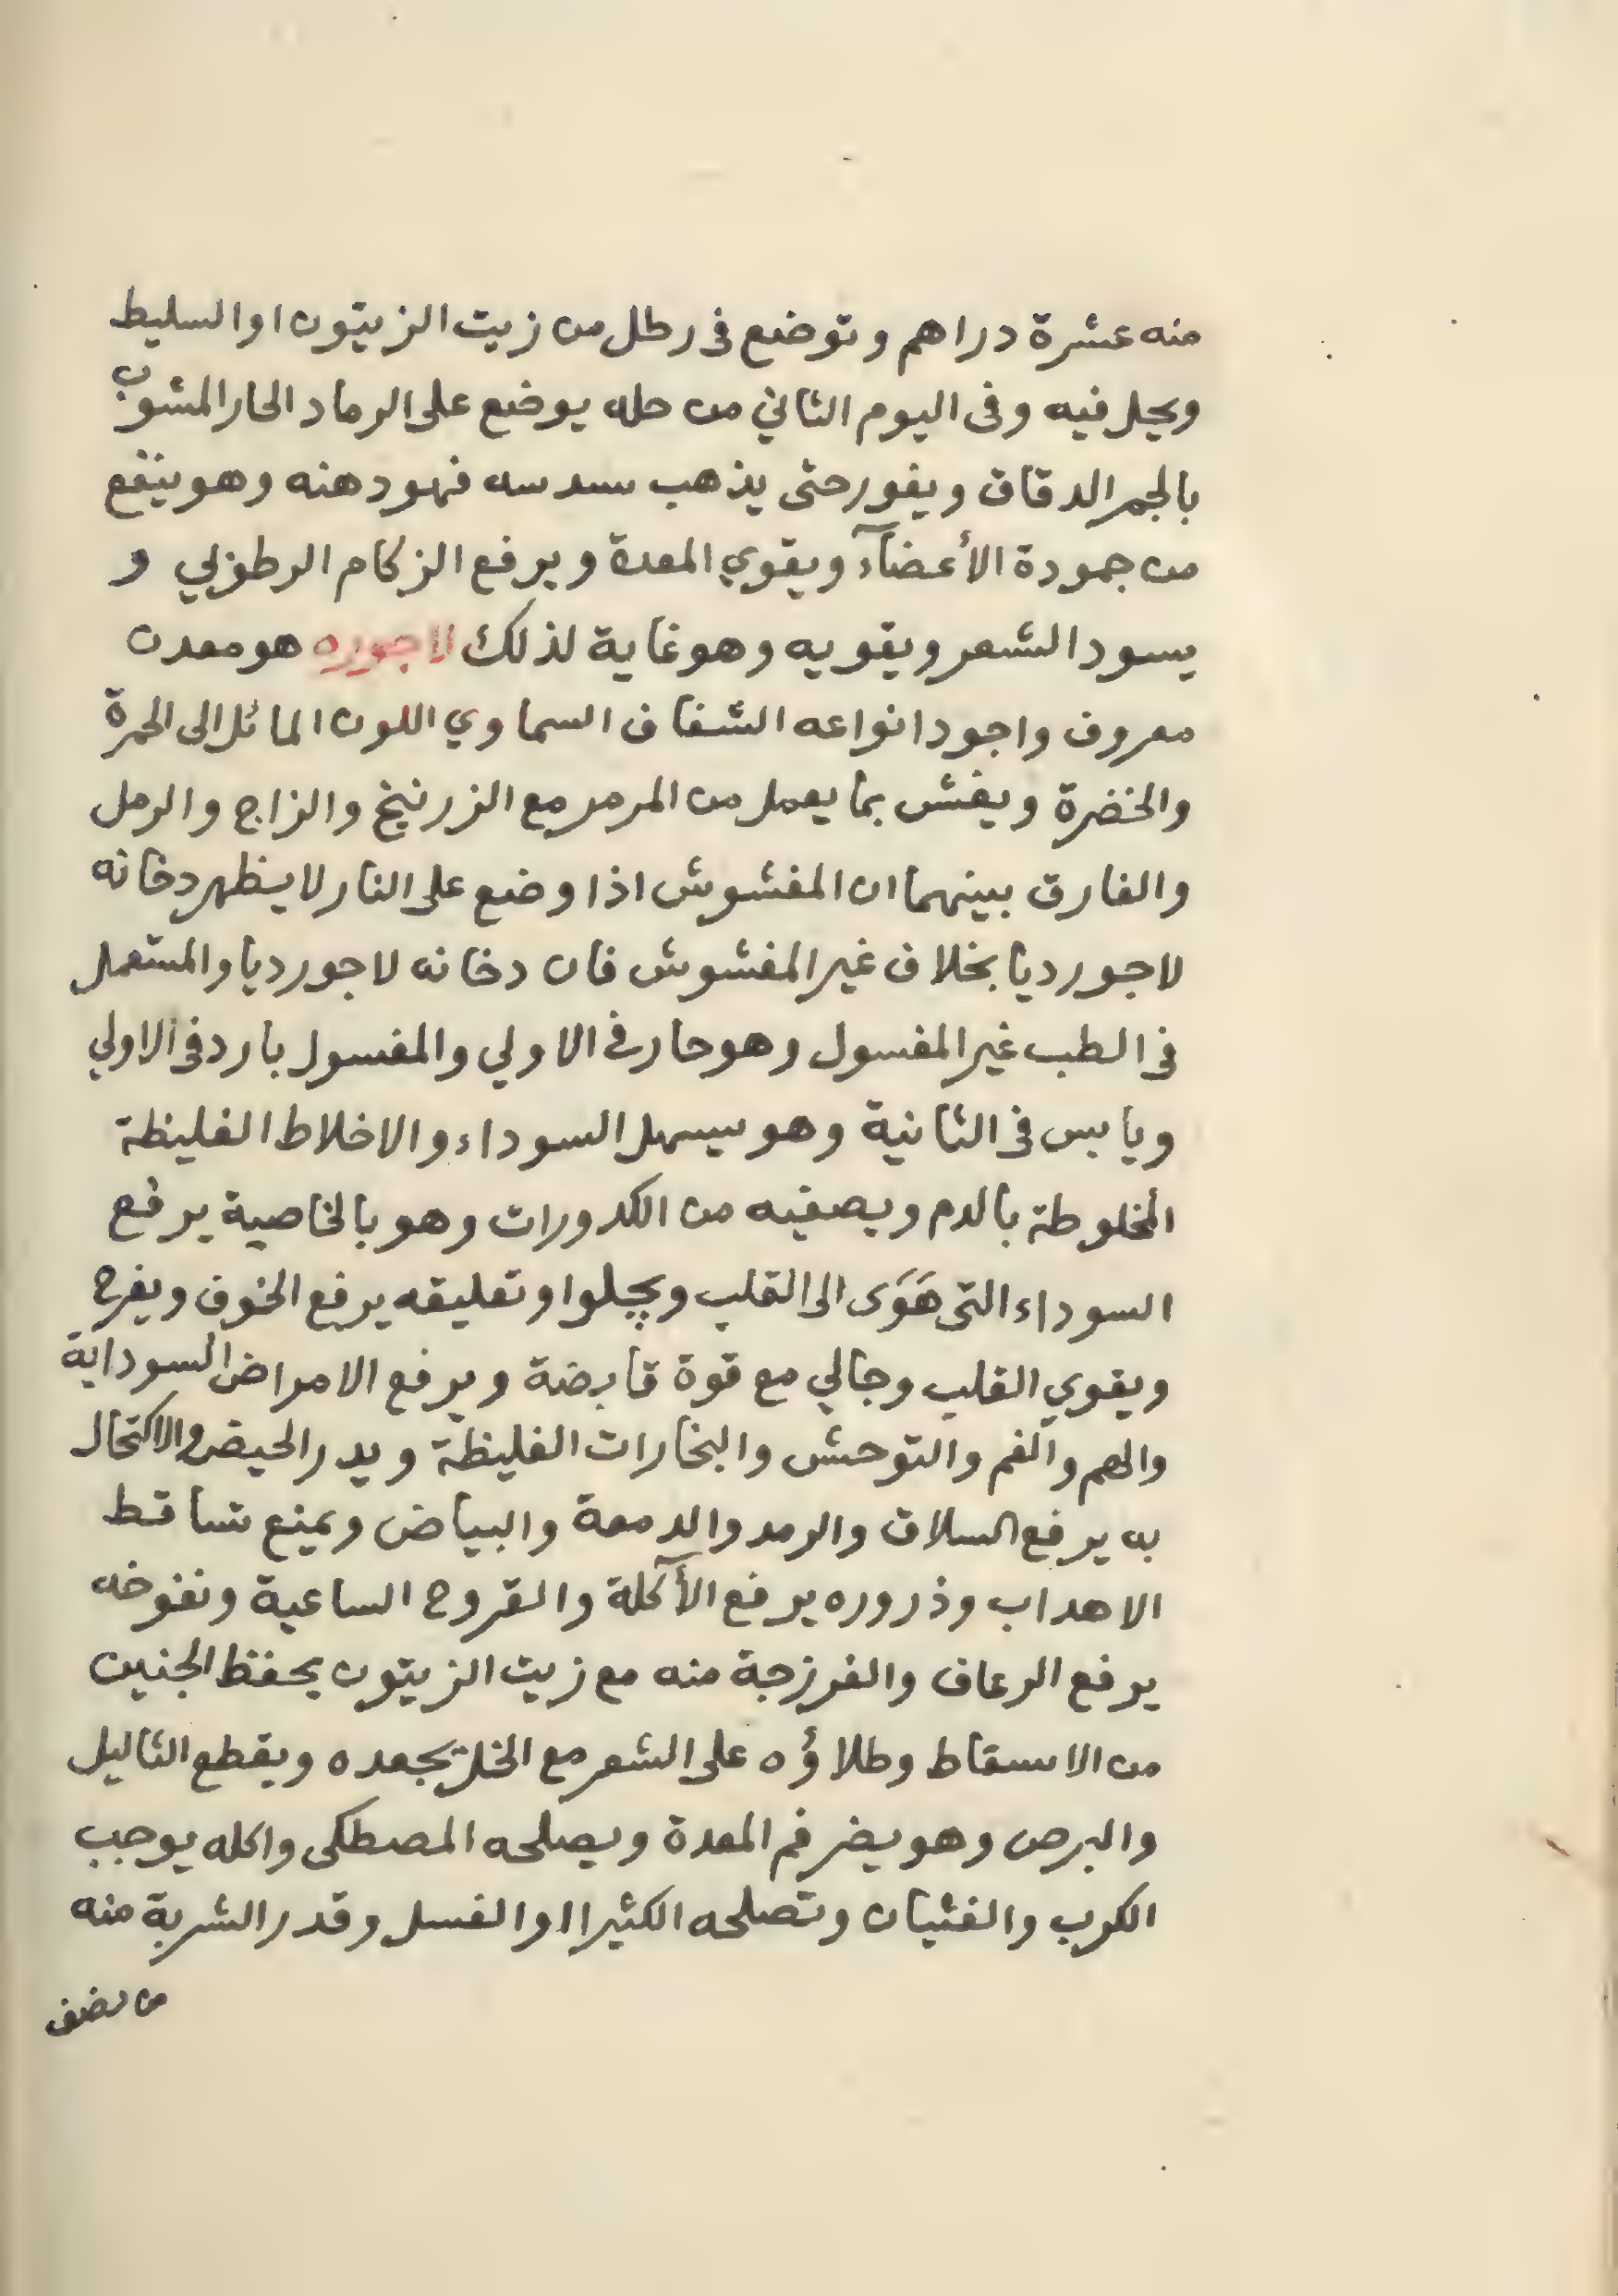 منه عشرة دراهم وتوضع فى رطل من زيت الزيتون او السليط
ويحل فيه وفى اليوم الثاني من حله يوضع على الرماد الحار المشوب
بالجمر الدقاق ويفور حتى يذهب سدسه فهو دهنه وهو ينفع
من جمودة الأعضآء ويقوي المعدة ويرفع الزكام الرطوبي و
يسود الشعر ويقويه وهو غاية لذلك لاجوره هو معدن
معروف واجود انواعه الشفاف السماوي اللون المائل الى الحمرة
والخضرة ويغش بما يعمل من المرمر مع الزرنيخ والزاج والرمل
والفارق بينهما ان المغشوش اذا وضع على النار لا يظهر دخانه
لاجورديا بخلاف غير المغشوش فان دخانه لاجورديا والمستعمل
فى الطب غير المغسول وهو حار فى الاولي والمغسول بارد فى الاولي
ويابس فى الثانية وهو يسهل السوداء والاخلاط الغليظة
المخلوطة بالدم ويصفيه من الكدورات وهو بالخاصية يرفع
السوداء التى هَوَى الى القلب ويجلوا وتعليقه يرفع الخوف ويفرح
ويقوي القلب وجالي مع قوة قابضة ويرفع الامراض السوداية
والهم والغم والتوحش والبخارات الغليظة ويدر الحيض والاكتحال
به يرفع السلاق والرمد والدمعة والبياض ويمنع تساقط
الاهداب وذروره يرفع الأكلة والقروح الساعية ونفوخه
يرفع الرعاف والفرزجة منه مع زيت الزيتون يحفظ الجنين
من الاسقاط وطلاؤه على الشعر مع الخل يجعده ويقطع الثاليل
والبرص وهو يضر فم المعدة ويصلحه المصطكى واكله يوجب
الكرب والغثيان وتصلحه الكثيرا او الغسل وقدر الشربة منه
من نصف